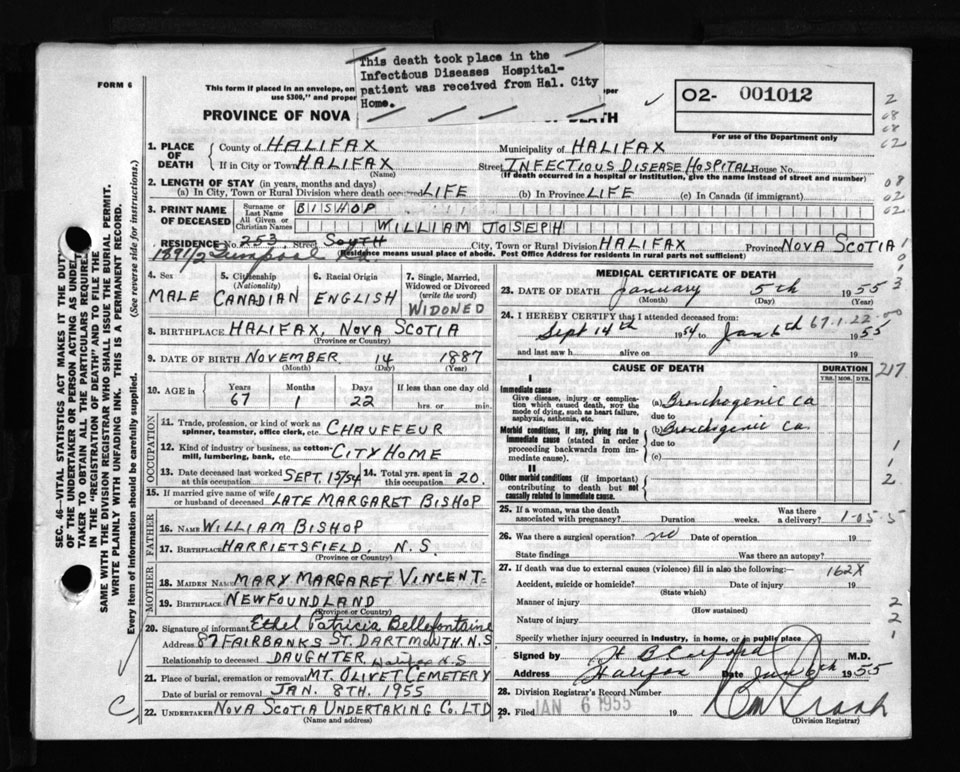 This death took place in the
Infectious Diseases Hospital-
patient was received from Hal. City
Home.
FORM 6
This form if placed in an envelope, on
use $300," and proper
PROVINCE OF NOVA
OF DEATH
O2- 001012
For use of the Department only
2
08
08
02
1. PLACE OF DEATH
County of HALIFAX
Municipality of HALIFAX
If in City or Town HALIFAX
(Name)
Street INFECTIOUS DISEASE HOSPITAL House No.
(If death occurred in a hospital or institution, give the name instead of street and number)
2. LENGTH OF STAY (in years, months and days)
(a) In City, Town or Rural Division where death occurred LIFE (b) In Province LIFE (c) In Canada (if immigrant)
08
02
02
3. PRINT NAME OF DECEASED
Surname or Last Name BISHOP
All Given or Christian Names WILLIAM JOSEPH
RESIDENCE No. 253 Street SOUTH City, Town or Rural Division HALIFAX Province NOVA SCOTIA
189 1/2
Residence means usual place of abode. Post Office Address for residents in rural parts not sufficient)
4. Sex
MALE
5. Citizenship
(Nationality)
CANADIAN
6. Racial Origin
ENGLISH
7. Single, Married, Widowed or Divorced
(write the word)
WIDOWED
8. BIRTHPLACE HALIFAX, NOVA SCOTIA
(Province or Country)
9. DATE OF BIRTH NOVEMBER 14 1887
(Month) (Day) (Year)
10. AGE in
Years Months Days If less than one day old
67 1 22 hrs. or min.
OCCUPATION
11. Trade, profession, or kind of work as spinner, teamster, office clerk, etc. CHAUFFEUR
12. Kind of industry or business, as cotton-mill, lumbering, bank, etc. CITY HOME
13. Date deceased last worked at this occupation SEPT. 15/54
14. Total yrs. spent in this occupation 20.
15. If married give name of wife or husband of deceased LATE MARGARET BISHOP
FATHER
16. NAME WILLIAM BISHOP
17. BIRTHPLACE HARRIETSFIELD, N.S.
(Province or Country)
MOTHER
18. MAIDEN NAME MARY MARGARET VINCENT
19. BIRTHPLACE NEWFOUNDLAND
(Province or Country)
20. Signature of informant Ethel Patricia Bellefontaine
Address 87 FAIRBANKS ST. DARTMOUTH, N.S
Relationship to deceased DAUGHTER Halifax N.S
21. Place of burial, cremation or removal MT. OLIVET CEMETERY
Date of burial or removal JAN. 8TH. 1955
22. UNDERTAKER NOVA SCOTIA UNDERTAKING CO. LTD
(Name and address)
C
MEDICAL CERTIFICATE OF DEATH
23. DATE OF DEATH January 5th 1955
(Month) (Day) (Year)
3
24. I HEREBY CERTIFY that I attended deceased from:
67-1-22-00
Sept 14th 1954 to Jan 6th 1955
and last saw h alive on 19
CAUSE OF DEATH
DURATION
YRS. MOS. DYS.
217
I
Immediate cause
Give disease, injury or complication which caused death, not the mode of dying, such as heart failure, asphyxia, asthenia, etc.
(a) Bronchogenic Ca
due to
Morbid conditions, if any, giving rise to immediate cause (stated in order proceeding backwards from immediate cause).
(b) Bronchogenic Ca.
due to
(c)
II
Other morbid conditions (if important) contributing to death but not causally related to immediate cause.
1
1
2
25. If a woman, was the death associated with pregnancy? Duration weeks. Was there a delivery?
1-05-5
26. Was there a surgical operation? no Date of operation 19
State findings Was there an autopsy?
27. If death was due to external causes (violence) fill in also the following:—
162X
Accident, suicide or homicide? Date of injury 19
(State which)
Manner of injury
(How sustained)
Nature of injury
Specify whether injury occurred in industry, in home, or in public place
2
2
1
Signed by M.D.
Address Halifax Date Jan 6th 1955
28. Division Registrar's Record Number
29. Filed JAN 6 1955 19
(Division Registrar)
SEC. 46—VITAL STATISTICS ACT MAKES IT THE DUTY
OF THE UNDERTAKER OR PERSON ACTING AS UNDER-
TAKER TO OBTAIN ALL THE PARTICULARS REQUIRED
IN THE "REGISTRATION OF DEATH" AND TO FILE THE
SAME WITH THE DIVISION REGISTRAR WHO SHALL ISSUE THE BURIAL PERMIT.
WRITE PLAINLY WITH UNFADING INK. THIS IS A PERMANENT RECORD.
Every item of information should be carefully supplied. (See reverse side for instructions.)